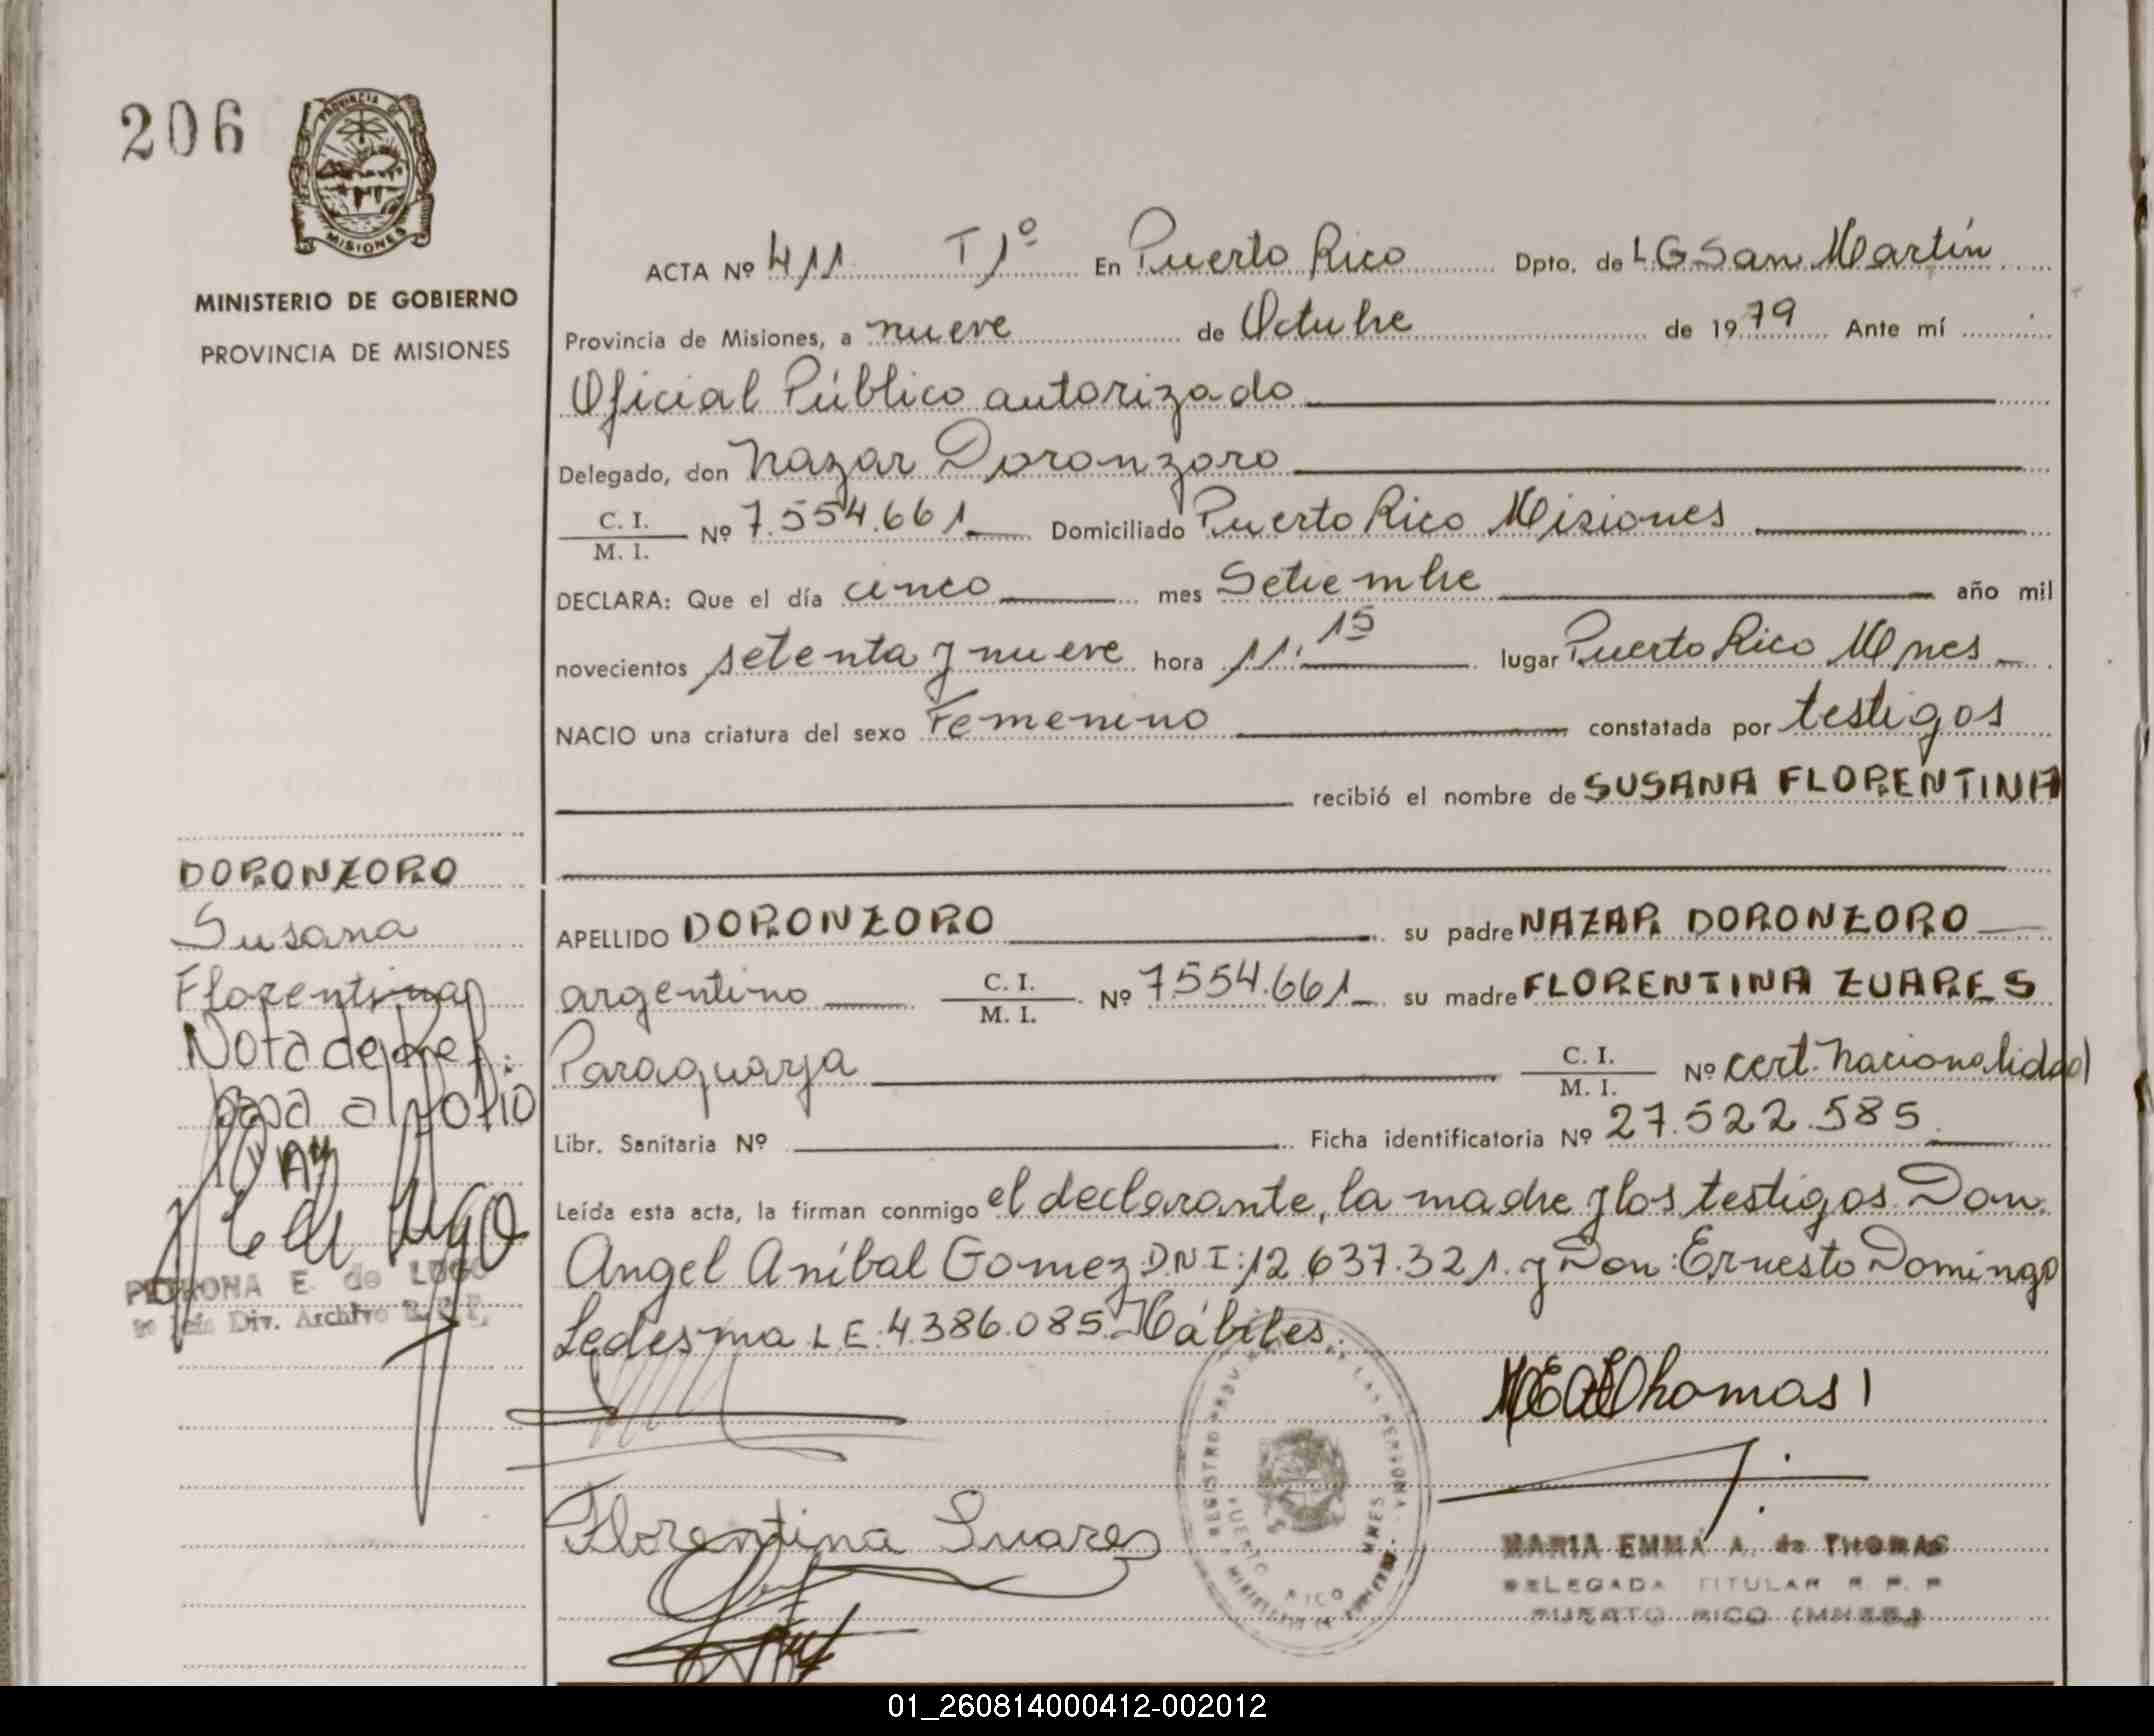 206
PROVINCIA DE
MISIONES
MINISTERIO DE GOBIERNO
PROVINCIA DE MISIONES
ACTA Nº 411 T1º En Puerto Rico Dpto. de L G San Martín
Provincia de Misiones, a nueve de Octubre de 1979 Ante mí
Oficial Público autorizado
Delegado, don Nazar Doronzoro
C. I. / M. I. Nº 7.554.661 Domiciliado Puerto Rico Misiones
DECLARA: Que el día cinco mes Setiembre año mil
novecientos setenta y nueve hora 11.15 lugar Puerto Rico Mnes
NACIO una criatura del sexo Femenino constatada por testigos
recibió el nombre de SUSANA FLORENTINA
DORONZORO
Susana
Florentina
Nota de Ref:
pasa al folio
APELLIDO DORONZORO su padre NAZAR DORONZORO
argentino C. I. / M. I. Nº 7554.661 su madre FLORENTINA ZUARES
Paraguaya C. I. / M. I. Nº cert. nacionalidad
Libr. Sanitaria Nº Ficha identificatoria Nº 27.522.585
Leída esta acta, la firman conmigo el declarante, la madre y los testigos Don
Angel Aníbal Gomez D.N.I:12.637.321. y Don: Ernesto Domingo
Ledesma L E.4.386.085. Hábiles.
PETRONA E. de LUGO
Div. Archivo
Florentina Suares
REGISTRO PROV DE LAS PERSONAS
PUERTO RICO MNES
MARIA EMMA A. de THOMAS
DELEGADA TITULAR R. P. P
PUERTO RICO (MNES.)
01_260814000412-002012